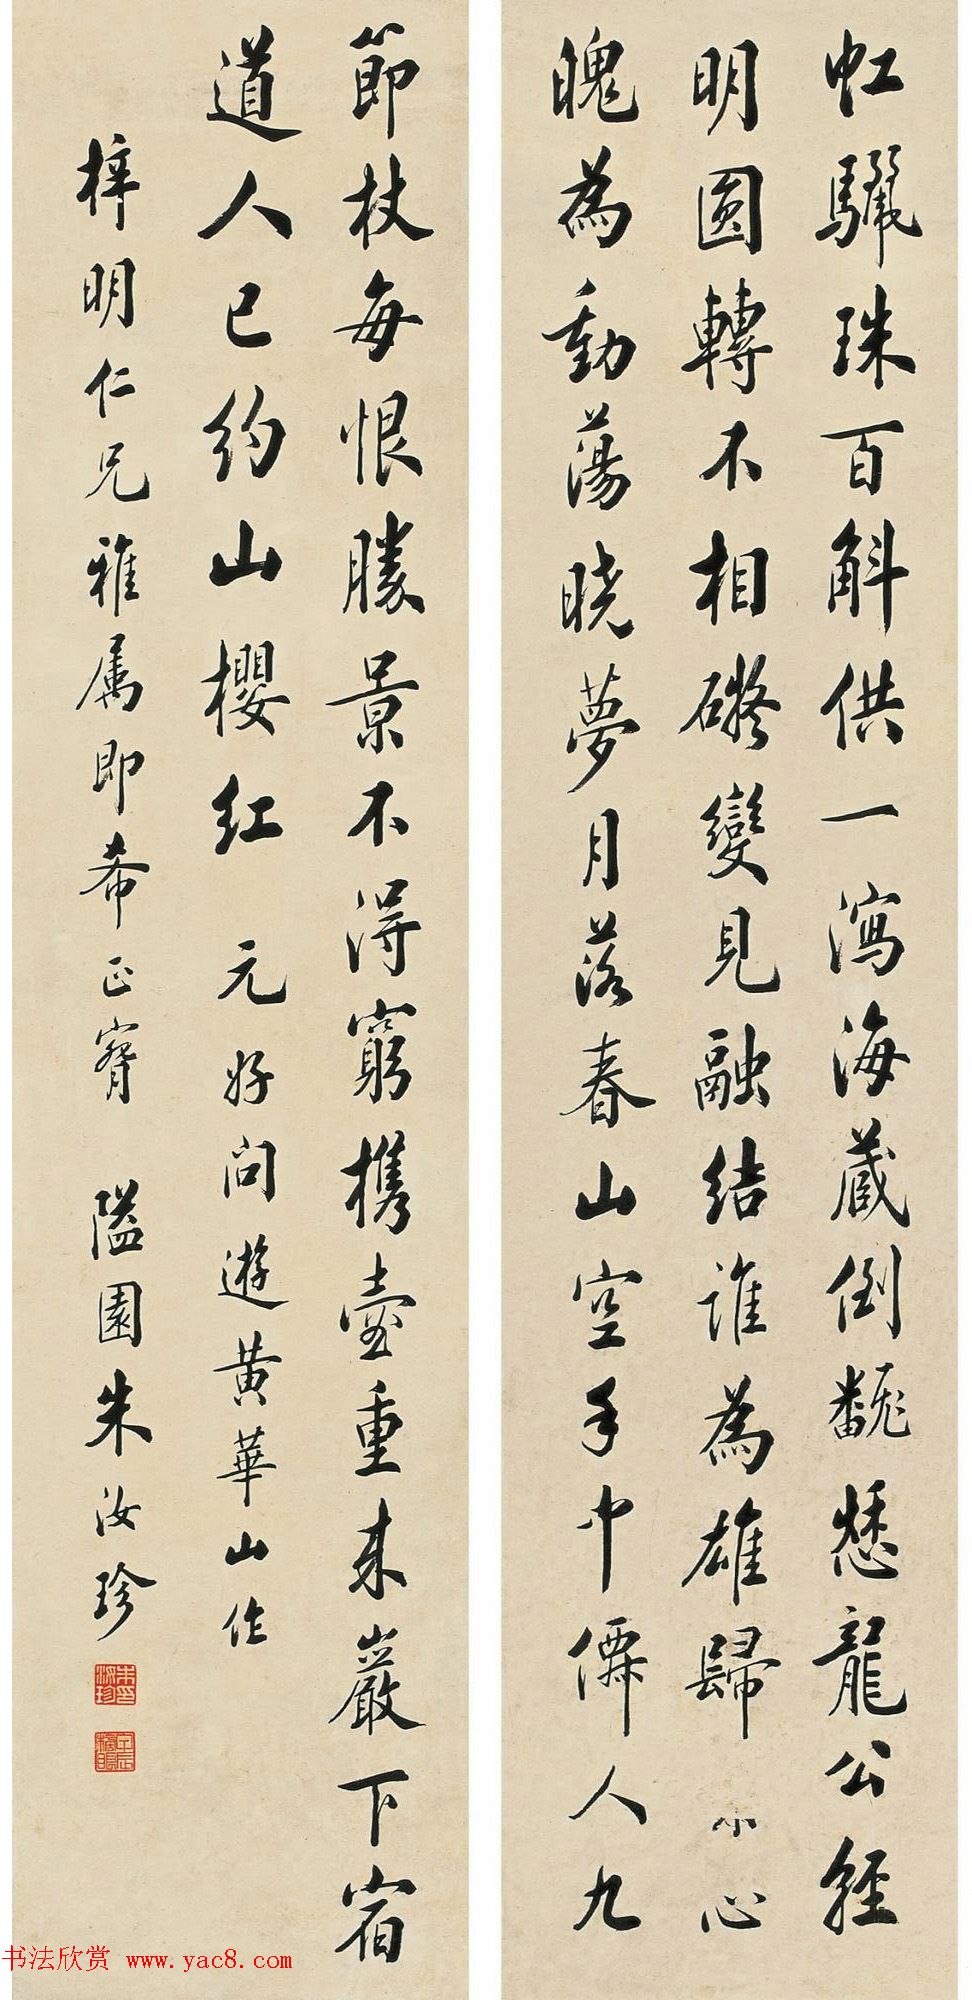 虹驪珠百斛供一瀉海藏倒飜愁龍公輕
明圓轉不相礙變見融結誰為雄歸小心
魄為動蕩曉夢月落春山空手中僊人九
節杖每恨勝景不得窮攜壺重來巖下宿
道人已約山櫻紅 元好問遊黃華山作
梓明仁兄雅属即希正㝛 隘園朱汝珍
朱汝珍印
书法欣赏 www.yac8.com